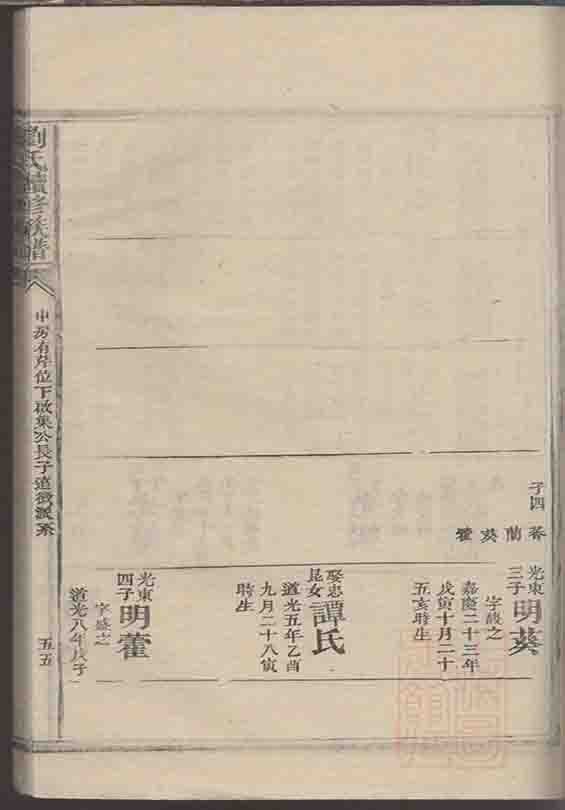 子四
蕃 蘭 葵 藿
光東三子
明葵
字馥之
嘉慶二十三年
戊寅十月二十
五亥時生
娶忠昆女
譚氏
道光五年乙酉
九月二十八寅
時生
光東四子
明藿
字盛之
道光八年戊子
劉氏續修族譜
申房有芹位下啟集公長子道微派系
五五